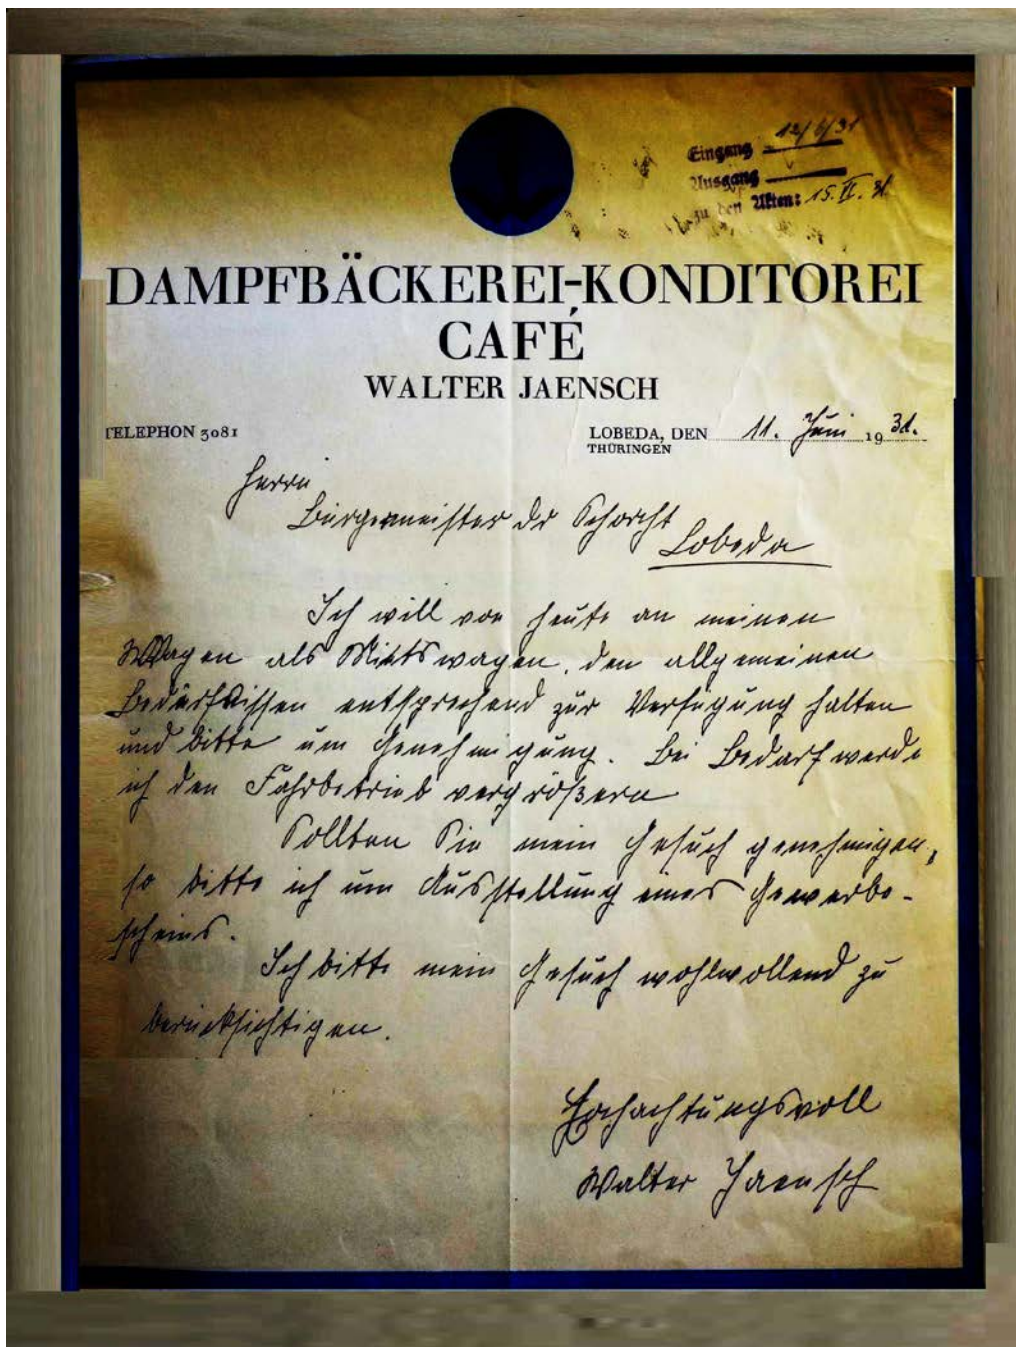 Eingang 12/6/31
Ausgang
zu den Akten: 15. II. 31
DAMPFBÄCKEREI-KONDITOREI
CAFÉ
WALTER JAENSCH
TELEPHON 3081
LOBEDA, DEN 11. Juni 1931.
THÜRINGEN
Herrn
Bürgermeister Dr Schorcht
Lobeda
Ich will von heute an meinen
Wagen als Mietswagen, den allgemeinen
Bedürfnissen entsprechend zur Verfügung halten
und bitte um Genehmigung. Bei Bedarf werde
ich den Fahrbetrieb vergrößern
Sollten Sie mein Gesuch genehmigen,
so bitte ich um Ausstellung eines Gewerbe-
scheins.
Ich bitte mein Gesuch wohlwollend zu
berücksichtigen.
Hochachtungsvoll
Walter Jaensch